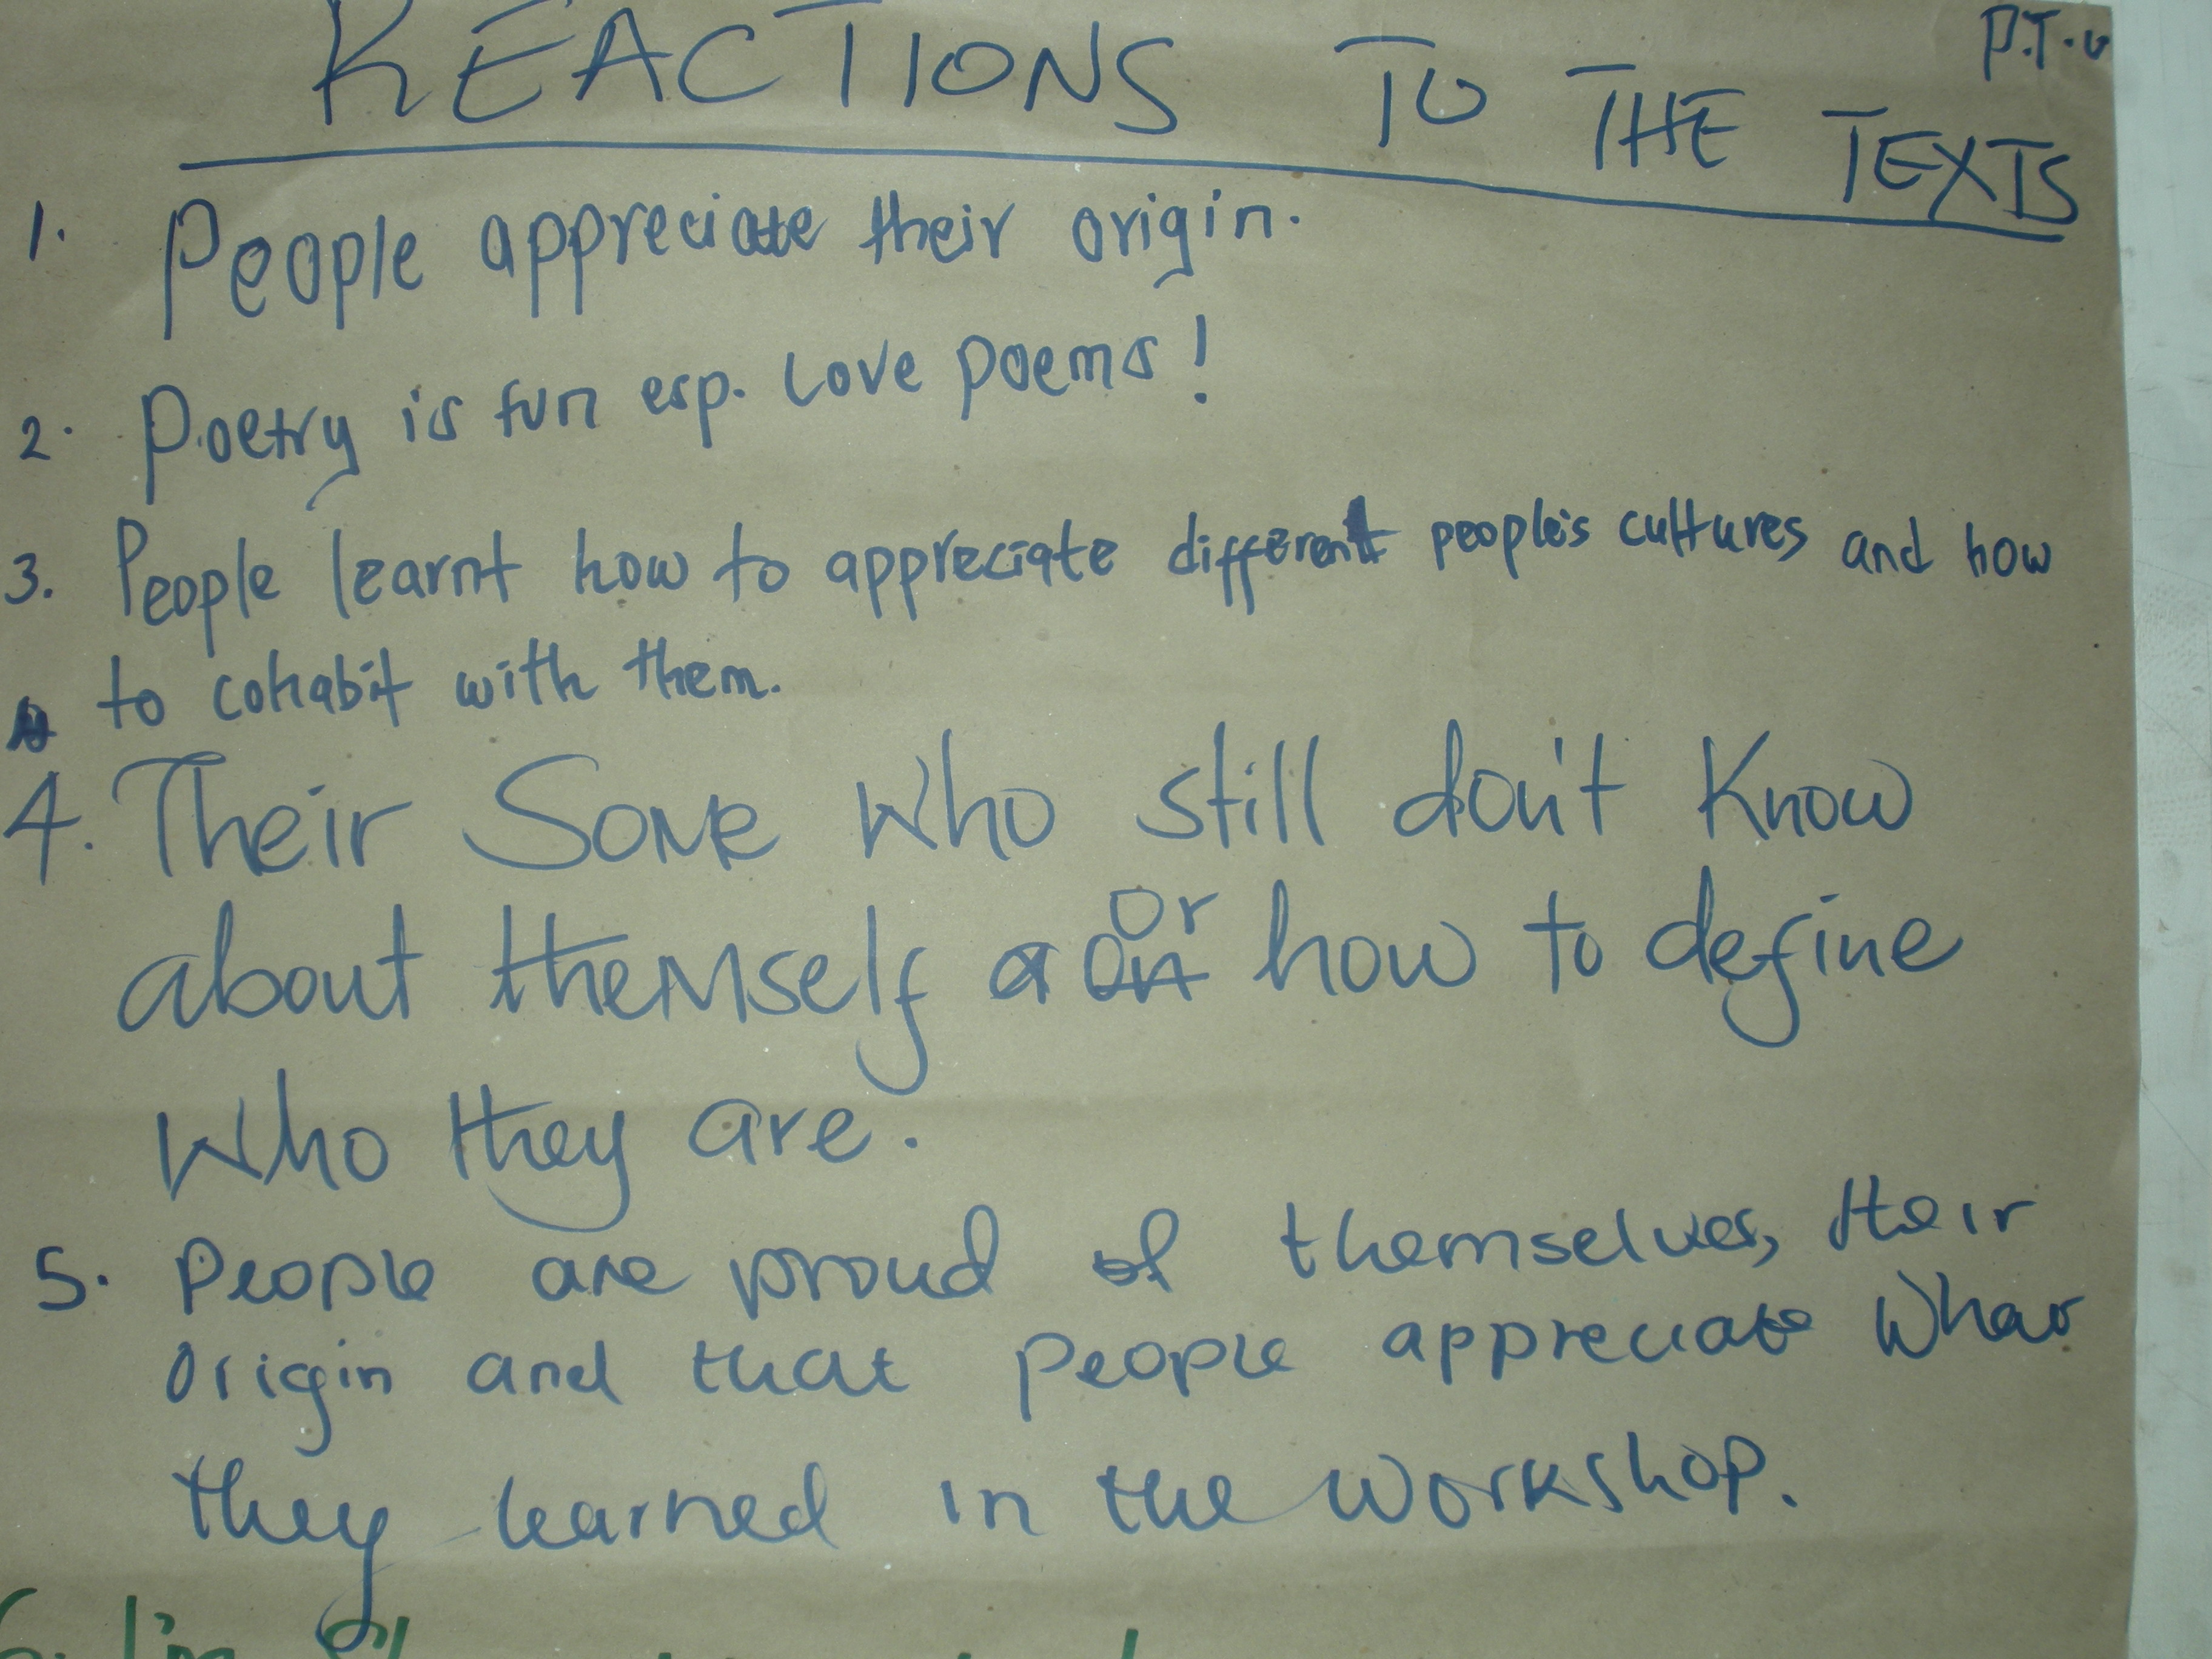 P.T.O
REACTIONS TO THE TEXTS
1. People appreciate their origin.
2. Poetry is fun esp. Love poems!
3. People learnt how to appreciate different people's cultures and how
to cohabit with them.
4. Their Some who still don't know
about themself or how to define
who they are.
5. People are proud of themselves, their
origin and that people appreciate what
they learned in the workshop.
6. I'm